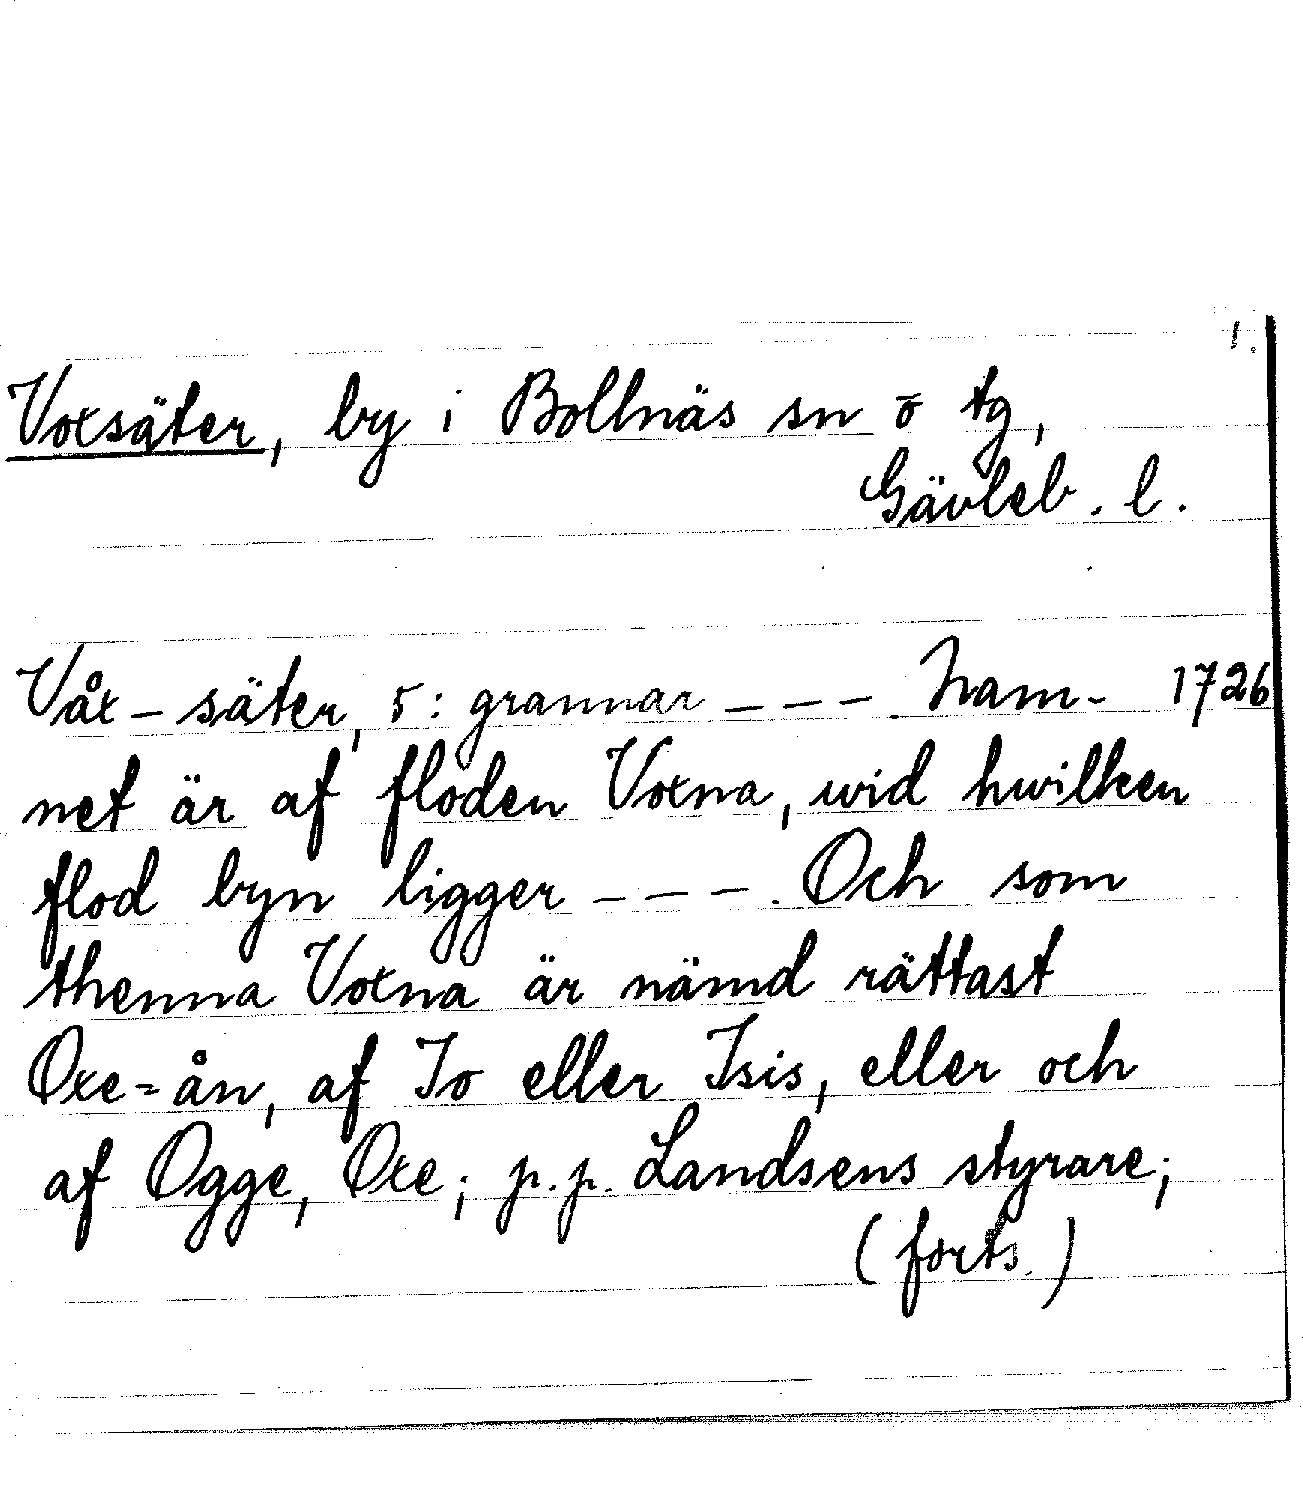 1.
Voxsäter, by i Bollnäs sn o tg,
Gävleb. l.
Våx-säter, 5: grannar --- . Nam- 1726
net är af floden Voxna, wid hwilken
flod byn ligger --- . Och som
thenna Voxna är nämd rättast
Oxe=ån, af Io eller Isis, eller och
af Ogge, Oxe; p.p. Landsens styrare;
(forts.)